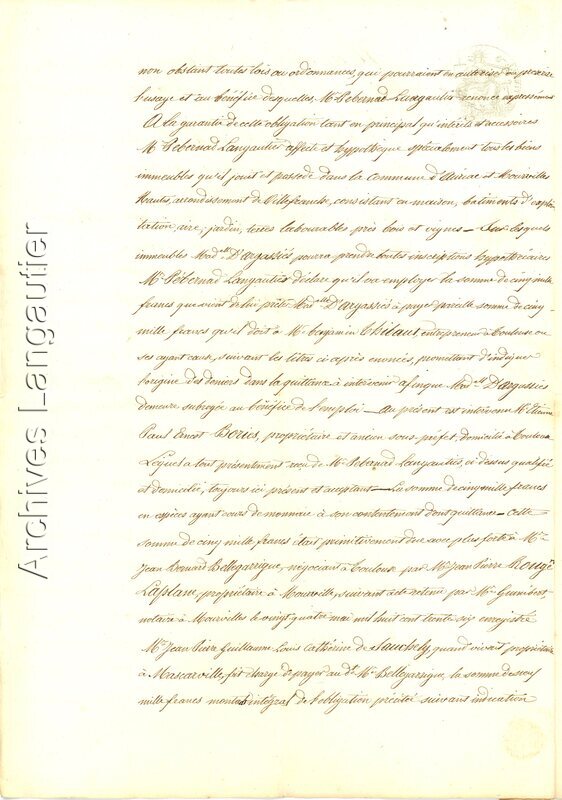 non obstant toutes lois ou ordonnances, qui pourraient en autoriser ou prescrire
l'usage et au bénéfice desquelles, Mr. Pébernad Langautier renonce expressément
A la garantie de cette obligation tant en principal qu'intérêts et accessoires
Mr Pébernad Langautier affecte et hypothèque spécialement tous les biens
immeubles qu'il jouit et possède dans la commune d'Auriac et Mourvilles
Hautes, arrondissement de Villefranche, consistant en maison, batiments d'exploi
tation, aire, jardin, terres labourables près bois et vignes — Sur lesquels
immeubles Mad.elle D'argassies pourra prendre toutes inscriptions hypothécaires
Mr Pébernad Langautier déclare qu'il va employer la somme de cinq mille
francs que vient de lui prêter Mad.elle D'argassies à payer pareille somme de cinq
mille francs qu'il doit à Mr benjamin entrepreneur à Toulouse ou
ses ayant cause, suivant les titres ci après enoncés, promettant d'indiquer
l'origine des deniers dans la quittance à intervenir afin que Mad.elle D'argassies
demeure subrogée au bénéfice de l'emploi — Au présent est intervenu Mr. Etienne
Paul Ernest Bories, propriétaire et ancien sous-préfet, domicilié à Toulouse
Lequel a tout présentement reçu de Mr. Pebernad Langautier, ci dessus qualifié
et domicilié, toujours ici présent et acceptant — La somme de cinq mille francs
en espèces ayant cours de monnaie à son contentement dont quittance — Cette
somme de cinq mille francs étant primitivement due avec plus forte à Mr.
Jean Bernard Bellegarrigue, négociant à Toulouse par Mr. Jean Pierre Rougé
Laplane, propriétaire à Mourville, suivant acte retenu par Mr. Guiribert
notaire à Mourvilles le vingt quatre mai mil huit cent trente six enregistré
Mr. Jean Pierre Guillaume Louis Cathérine de quand vivait propriétaire
à Mascarville, fut chargé de payer au dt. Mr Bellegarrigue, la somme de neuf
mille francs montant intégral de l'obligation précitée suivant indication
Archives Langautier